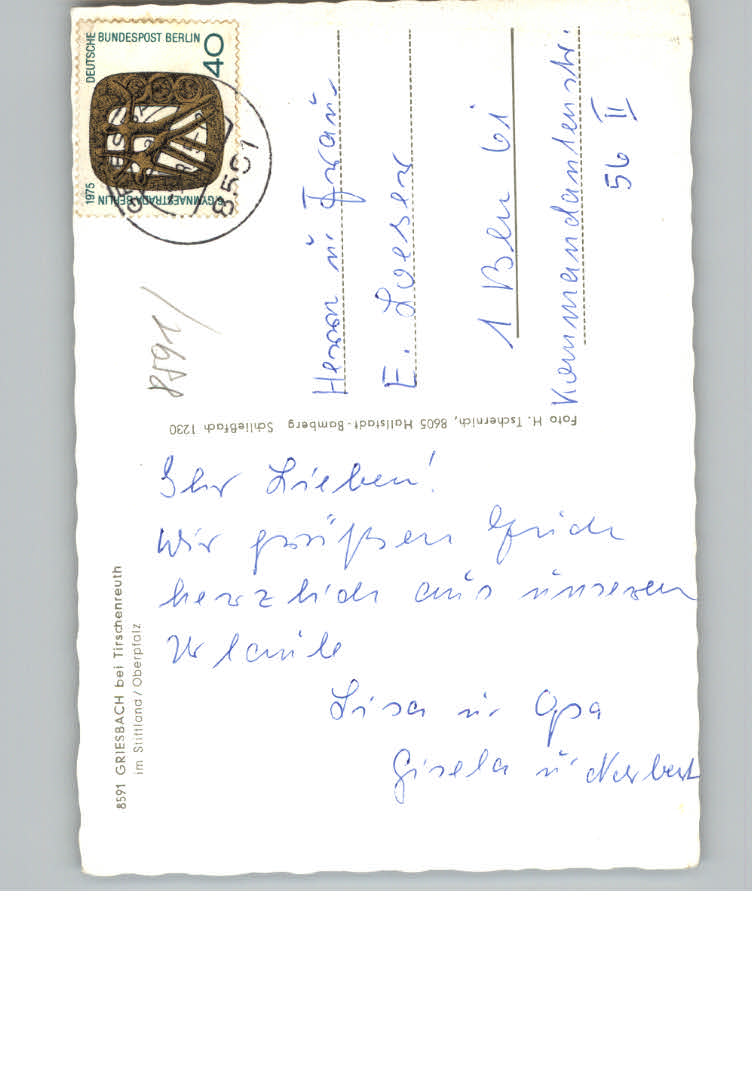 8591 GRIESBACH bei Tirschenreuth
im Stiftland/Oberpfalz
Ihr Lieben!
Wir grüßen Euch
herzlich aus unseren
Urlaub
Lisa u. Opa
Gisela u. Norbert
Foto H. Tschernich, 8605 Hallstadt-Bamberg Schließfach 1230
DEUTSCHE BUNDESPOST BERLIN
40
1975 6. GYMNAESTRADA BERLIN
8591
8591
Herrn u. Frau
E. Loeser
1 Bln 61
Kommandantenstr.
56 II